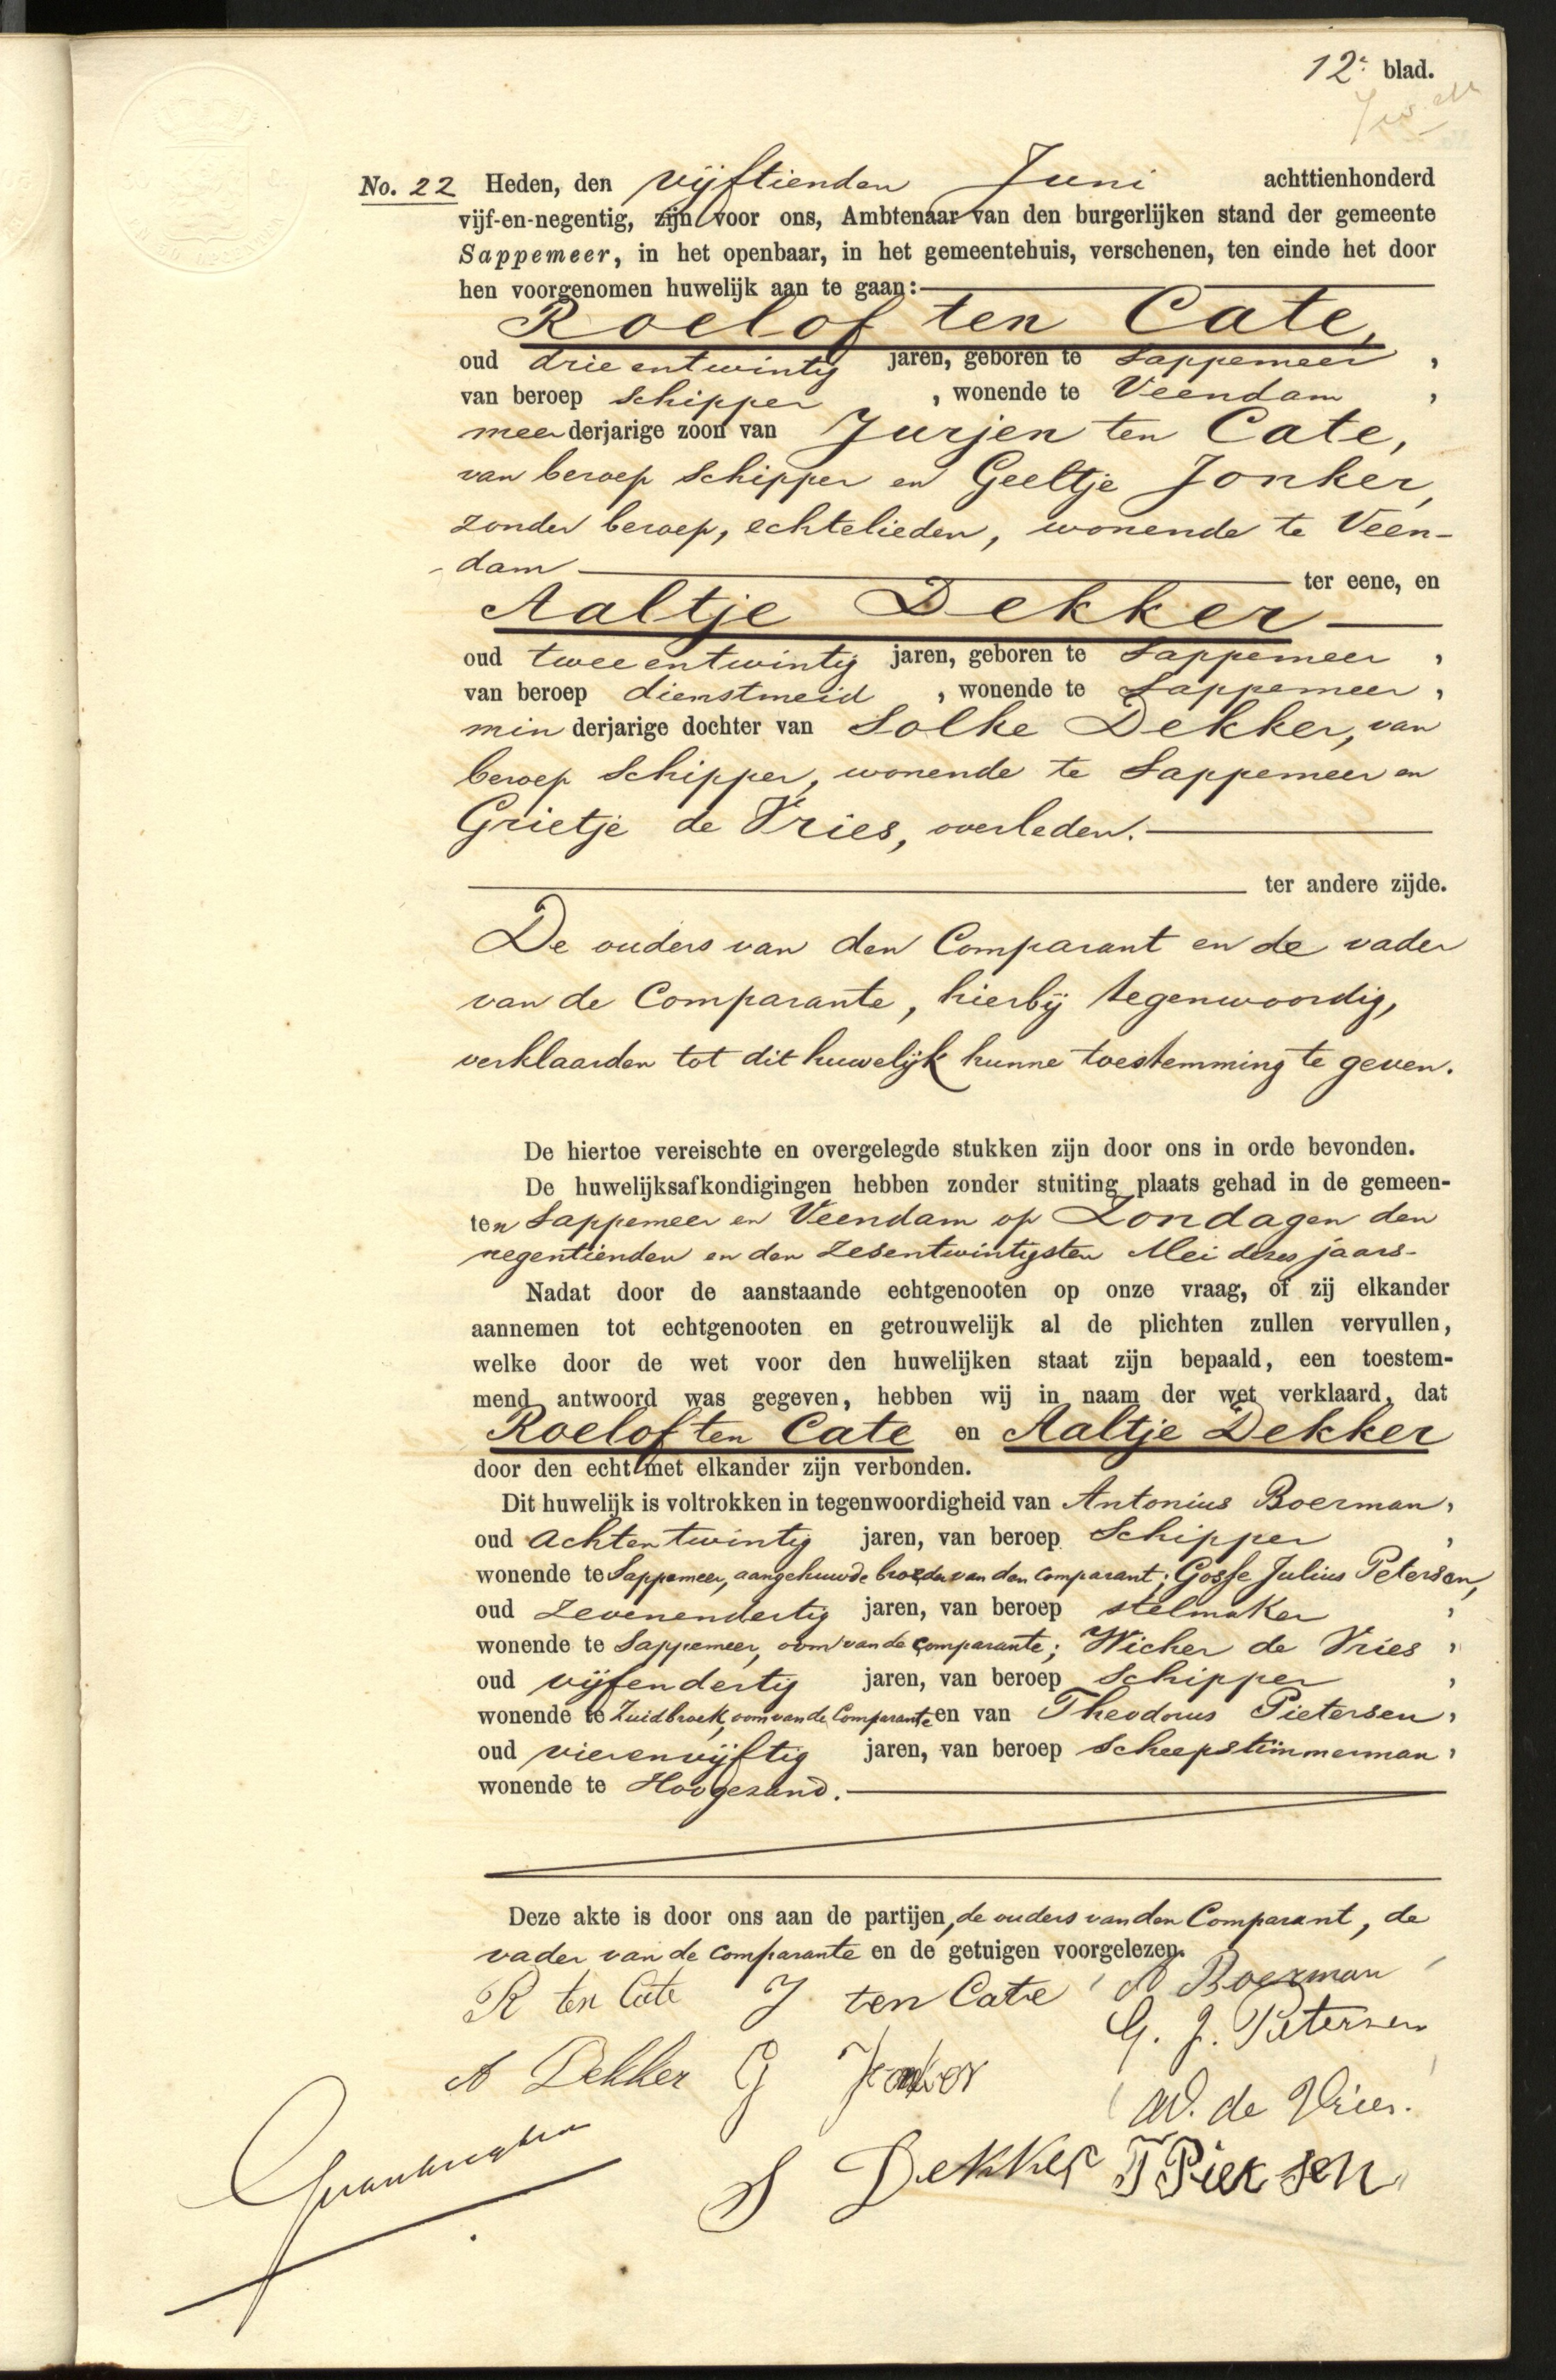 12e blad.
No. 22 Heden, den vijftienden Juni achttienhonderd
vijf-en-negentig, zijn voor ons, Ambtenaar van den burgerlijken stand der gemeente
Sappemeer, in het openbaar, in het gemeentehuis, verschenen, ten einde het door
hen voorgenomen huwelijk aan te gaan:
Roelof ten Cate,
oud drie entwintig jaren, geboren te Sappemeer,
van beroep Schipper, wonende te Veendam,
meerderjarige zoon van Jurjen ten Cate,
van beroep Schipper en Geeltje Jonker,
zonder beroep, echtelieden, wonende te Veen-
-dam ter eene, en
Aaltje Dekker
oud twee entwintig jaren, geboren te Sappemeer,
van beroep dienstmeid, wonende te Sappemeer,
minderjarige dochter van Solke Dekker, van
beroep Schipper, wonende te Sappemeer en
Grietje de Vries, overleden.
ter andere zijde.
De ouders van den Comparant en de vader
van de Comparante, hierbij tegenwoordig,
verklaarden tot dit huwelijk hunne toestemming te geven.
De hiertoe vereischte en overgelegde stukken zijn door ons in orde bevonden.
De huwelijksafkondigingen hebben zonder stuiting plaats gehad in de gemeen-
ten Sappemeer en Veendam op Zondagen den
negentienden en den zesentwintigsten Mei dezes jaars.
Nadat door de aanstaande echtgenooten op onze vraag, of zij elkander
aannemen tot echtgenooten en getrouwelijk al de plichten zullen vervullen,
welke door de wet voor den huwelijken staat zijn bepaald, een toestem-
mend antwoord was gegeven, hebben wij in naam der wet verklaard, dat
Roelof ten Cate en Aaltje Dekker
door den echt met elkander zijn verbonden.
Dit huwelijk is voltrokken in tegenwoordigheid van Antonius Boerman,
oud achtentwintig jaren, van beroep Schipper,
wonende te Sappemeer, aangehuwde broeder van den Comparant; Gosse Julius Petersen,
oud zevenendertig jaren, van beroep stelmaker,
wonende te Sappemeer, oom van de Comparante; Wicher de Vries,
oud vijfendertig jaren, van beroep Schipper,
wonende te Zuidbroek, oom van de Comparante en van Theodorus Pietersen,
oud vierenvijftig jaren, van beroep Scheepstimmerman,
wonende te Hoogezand.
Deze akte is door ons aan de partijen, de ouders van den Comparant, de
vader van de Comparante en de getuigen voorgelezen.
R ten Cate J ten Cate A Boerman
G. J. Petersen
A Dekker G Jonker
W. de Vries.
S Dekker T Piersen